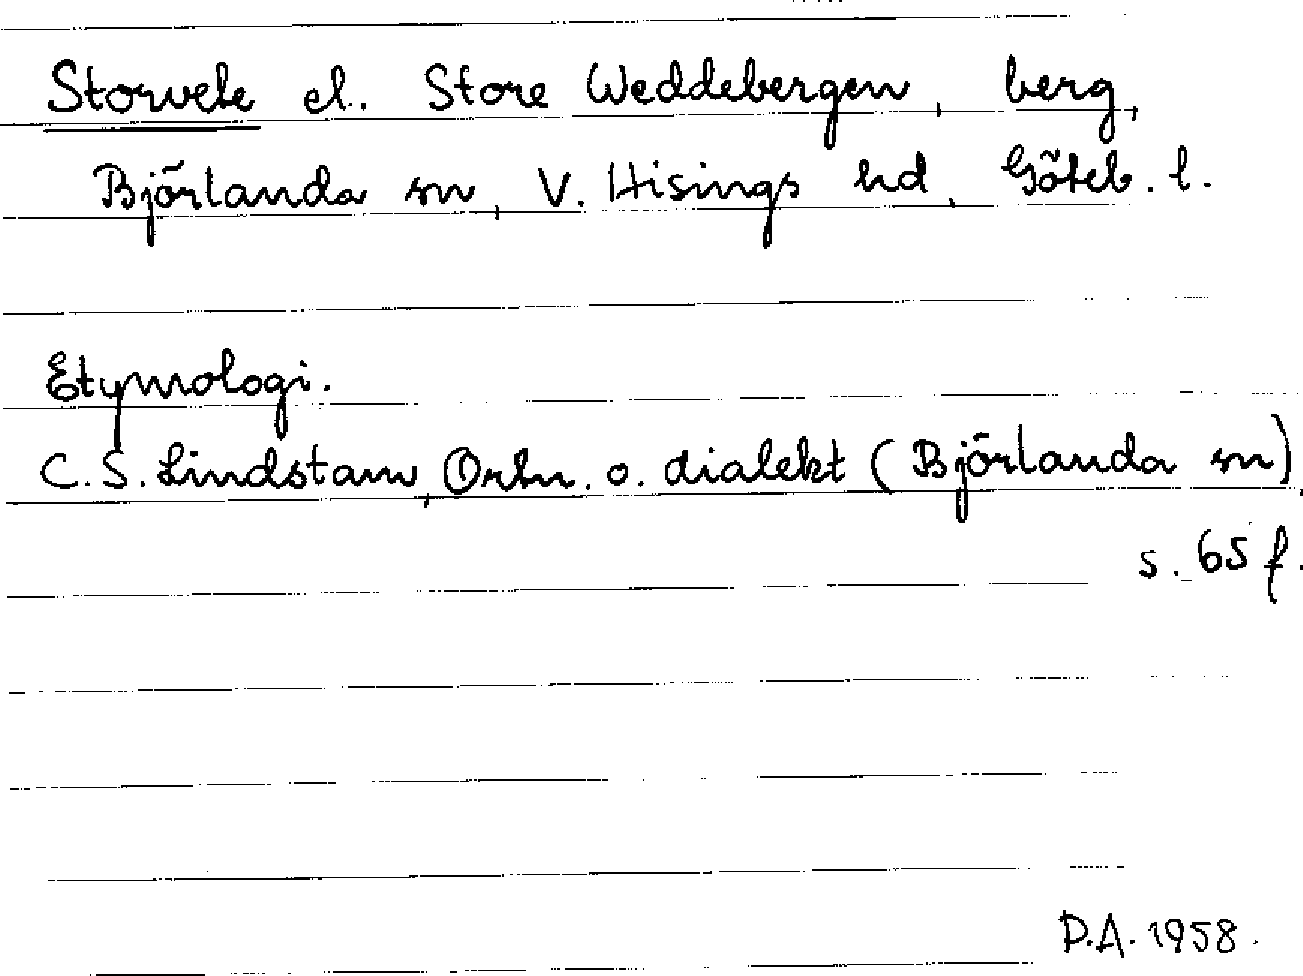 Storvete el. Store Weddebergen, berg,
Björlanda sn, V. Hisings hd, Göteb. l.
Etymologi.
C.S. Lindstam, Ortn. o. dialekt (Björlanda sn),
s. 65 f.
D.A. 1958.